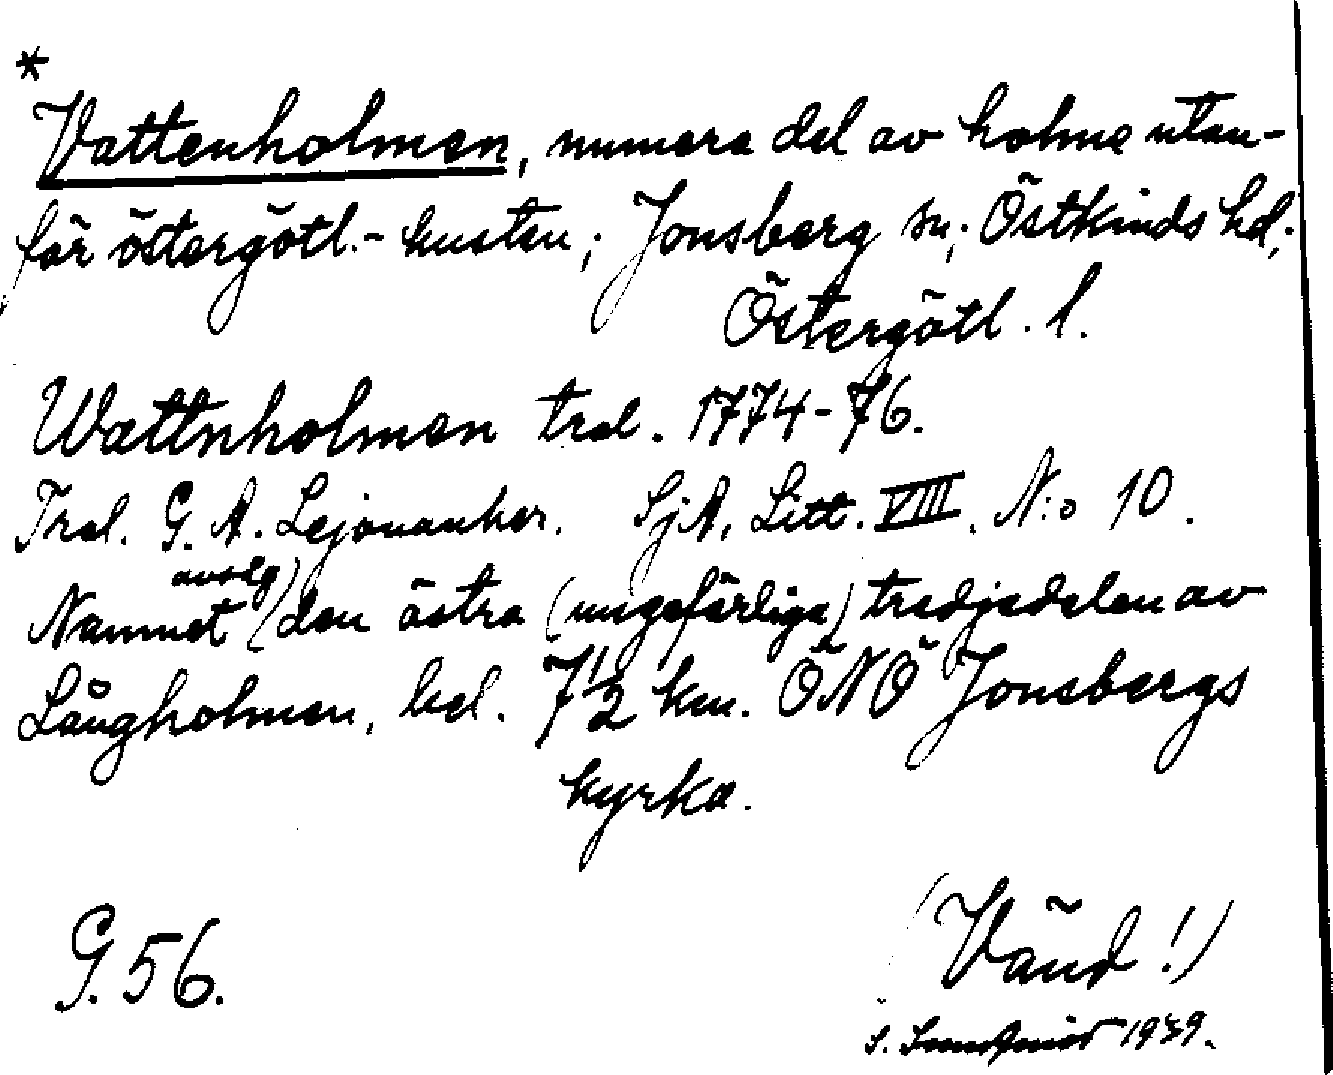 *
Vattenholmen, numera del av holme utan-
för östergötl.-kusten; Jonsberg sn; Östkinds hd;
Östergötl. l.
Wattnholmen tral. 1774-76.
Tral. G. A. Lejonanker. SjA, Litt. VIII. N:o 10.
avselg)
Namnet (den östra (ungefärliga) tredjedelen av
Långholmen, bel. 7 1/2 km. ÖNÖ Jonsbergs
kyrka.
G. 56.
(Vänd!)
S. 1939.